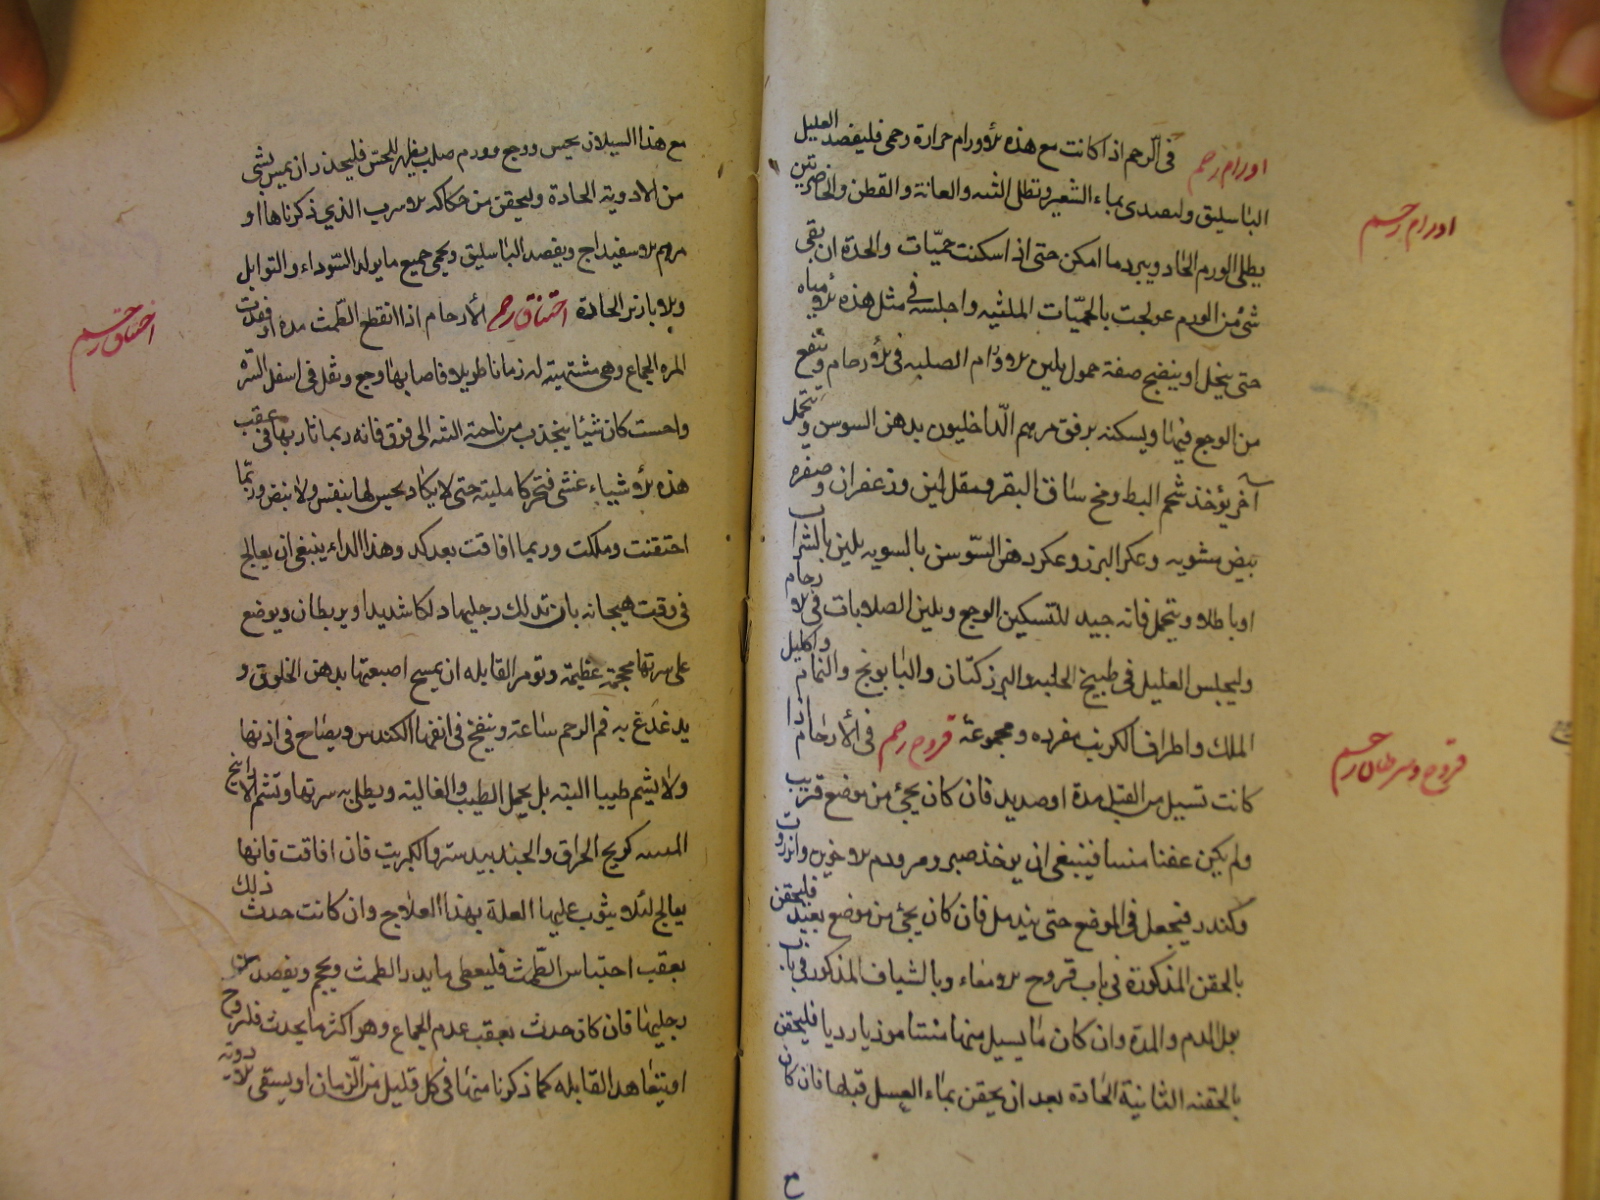 اورام رحم في الرحم اذا كانت مع هذه الاورام حرارة وحمى فليفصد العليل
الباسليق وليصدى بماء الشعير وتطلى الثنه والعانة والقطن والخاصرتين
بطلى الورم الحاد ويبرد ما امكن حتى اذا سكنت حميّات والحدة ان بقى
شئ من الورم عولجت بالحميّات الملينه واجلسه في مثل هذه المياه
حتى ينحل او ينضج صفة حمول يلين الاورام الصلبه في الارحام وينفع
من الوجع فيها ويسكنه برفق مرهم الداخليون بدهن السوس ويتحمل
آخر يؤخذ شحم البط ومخ ساق البقر ومقل لين وزعفران وصفره
بيض مشويه وعكر البزر وعكر دهن السّوسن بالسويه يلين بالشراب
او باطلاء ويتحمل فانه جيد للتسكين الوجع ويلين الصلابات في الارحام
وليجلس العليل في طبيخ الحلبه والبزركتان والبابونج والنمام واكليل
الملك واطراف الكرنب مفرده ومجموعة قروح رحم في الأرحام اذا
كانت تسيل من القبل مدة او صديد فان كان يجئ من موضع قريب
ولم يكن عفنا منتنا فينبغي ان يوخذ صبر ومر ودم الاخوين وانزروت
وكندر فيجعل في الموضع حتى يندمل فان كان يجئ من موضع بعيد فليحقن
بالحقن المذكورة في باب قروح الامعاء وبالشياف المذكور في باب
بول الدم والمدة وان كان ما يسيل منها منتنا موذيا رديا فليحقن
بالحقنه الثانية الحادة بعد ان يحقن بماء العسل قبلها فان كان
اورام رحم
قروح وسرطان رحم
مع هذا السيلان يحس ووجع وورم صلب يظهر للحس فليحذر ان يمس بشى
من الادوية الحادة وليحقن من حكاكه الاسرب الذي ذكرناها او
مرهم الاسفيداج ويفصد الباسليق ويحمى جميع ما يولد السّوداء والتوابل
والابازير الحادة اختناق رحم الأرحام اذا انقطع الطّمث مدة او فقدت
المره الجماع وهي مشتهية له زمانا طويلا فاصابها وجع وثقل في اسفل السّره
واحست كان شيئا ينجذب من ناحية الثنه الى فوق فانه ربما ثار بها في عقب
هذه الاشياء غشى فتخر كالميته حتى لا يكاد يحس لها بنفس ولا بنبض وربما
احتقنت وهلكت وربما افاقت بعد كد وهذا الداء ينبغي ان يعالج
في وقت هيجانه بان تدلك رجليها دلكا شديدا ويربطان ويوضع
على سرتها محجمة عظيمة وتومر القابله ان يمسح اصبعها بدهن الخلوق و
يدغدغ به فم الرحم ساعة وينفخ في انفها الكندس ويصاح في اذنها
ولا يشم طيبا البته بل يحمل الطيب والغاليه ويطلى به سرتها وتشم الارايح
المنتنه كريح الحراق والجندبيدستر والكبريت فان افاقت فانها
يعالج لئلا يثوب عليها العلة بهذا العلاج وان كانت حدث ذلك
بعقب احتباس الطّمث فليعطى ما يدر الطمث ويحجم ويفصد من
رجليها فان كان حدث بعقب عدم الجماع وهو اكثر ما يحدث فلتزوج
او يتعاهد القابله كما ذكرنا منها في كل قليل من الزمان او يسقى الادوية
اختناق رحم